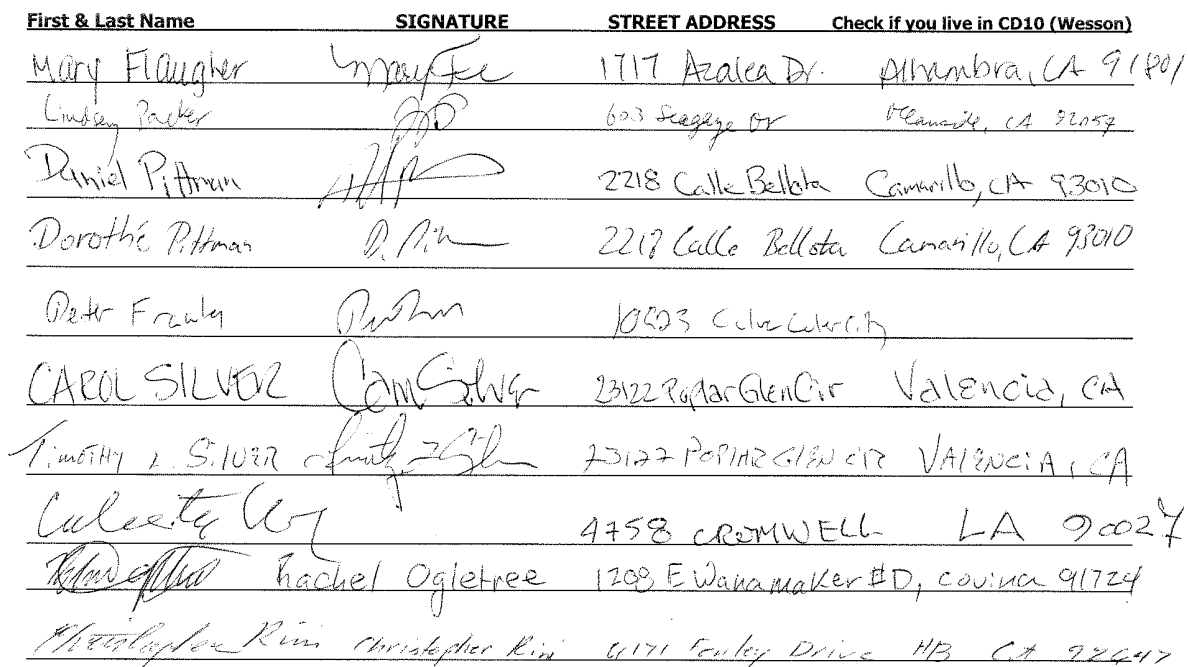 First & Last Name SIGNATURE STREET ADDRESS Check if you live in CD10 (Wesson)
Mary Flaugher 1717 Azalea Dr. Alhambra, CA 91801
Lindsey Packer 603 Dr CA
Daniel Pittman 2218 Calle Bellota Camarillo, CA 93010
Dorothé Pittman D. 2218 Calle Bellota Camarillo, CA 93010
Peter
CAROL SILVER 23122 Poplar Glen Cir Valencia, CA
Timothy L. SILVER 23122 POPLAR GLEN CIR VALENCIA, CA
4758 CROMWELL LA 90027
Rachel Ogletree 1208 E Wanamaker #D, covina 91724
Christopher Rini Christopher Rini Drive HB CA